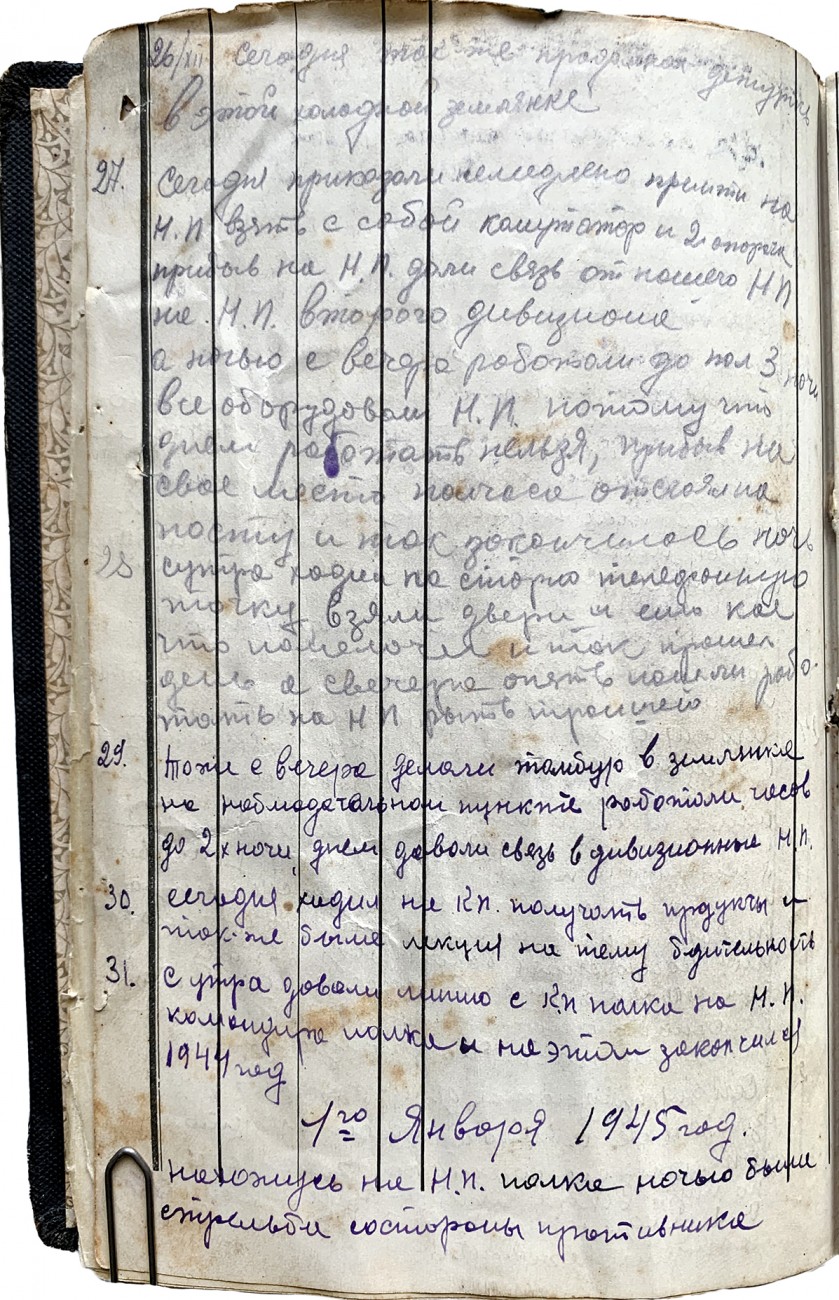 26/XII Сегодня так же продолжал дежурить
в этой холодной землянке
27. Сегодня приказали немедлено прийти на
Н.П взять с собой комутатор и 2 апарата
прибыв на Н.П. дали связь от нашего НП
на Н.П. второго дивизиона
а ночью с вечера работали до пол 3 ночи
все оборудовали Н.П. потому что
днем работать нельзя, прибыв на
свое место полчаса отстоял на
посту и так закончилась ночь
28 сутра ходил на старую телефонную
точку взяли двери и еще кое
что помелочи и так прошел
день а свечера опять пошли рабо-
тать на Н П рыть траншею
29. тоже с вечера делали тамбур в землянке
на наблюдательном пункте работали часов
до 2х ночи, днем довали связь в дивизионные Н.П.
30. сегодня ходил на К.П. получать продукты и
так-же была лекция на тему бдительность
31. с утра довали линию с КП полка на Н.П.
командира полка и на этом закончился
1944 год
1го Января 1945 год.
нахожусь на Н.П. полка ночью была
стрельба состороны противника